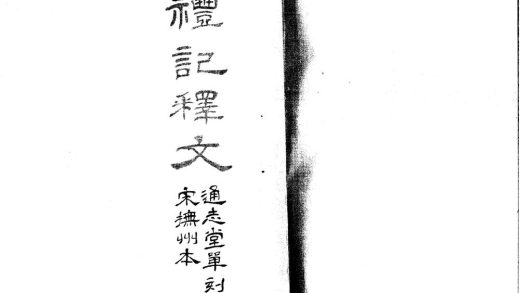 禮記釋文
通志堂單刻
宋撫州本